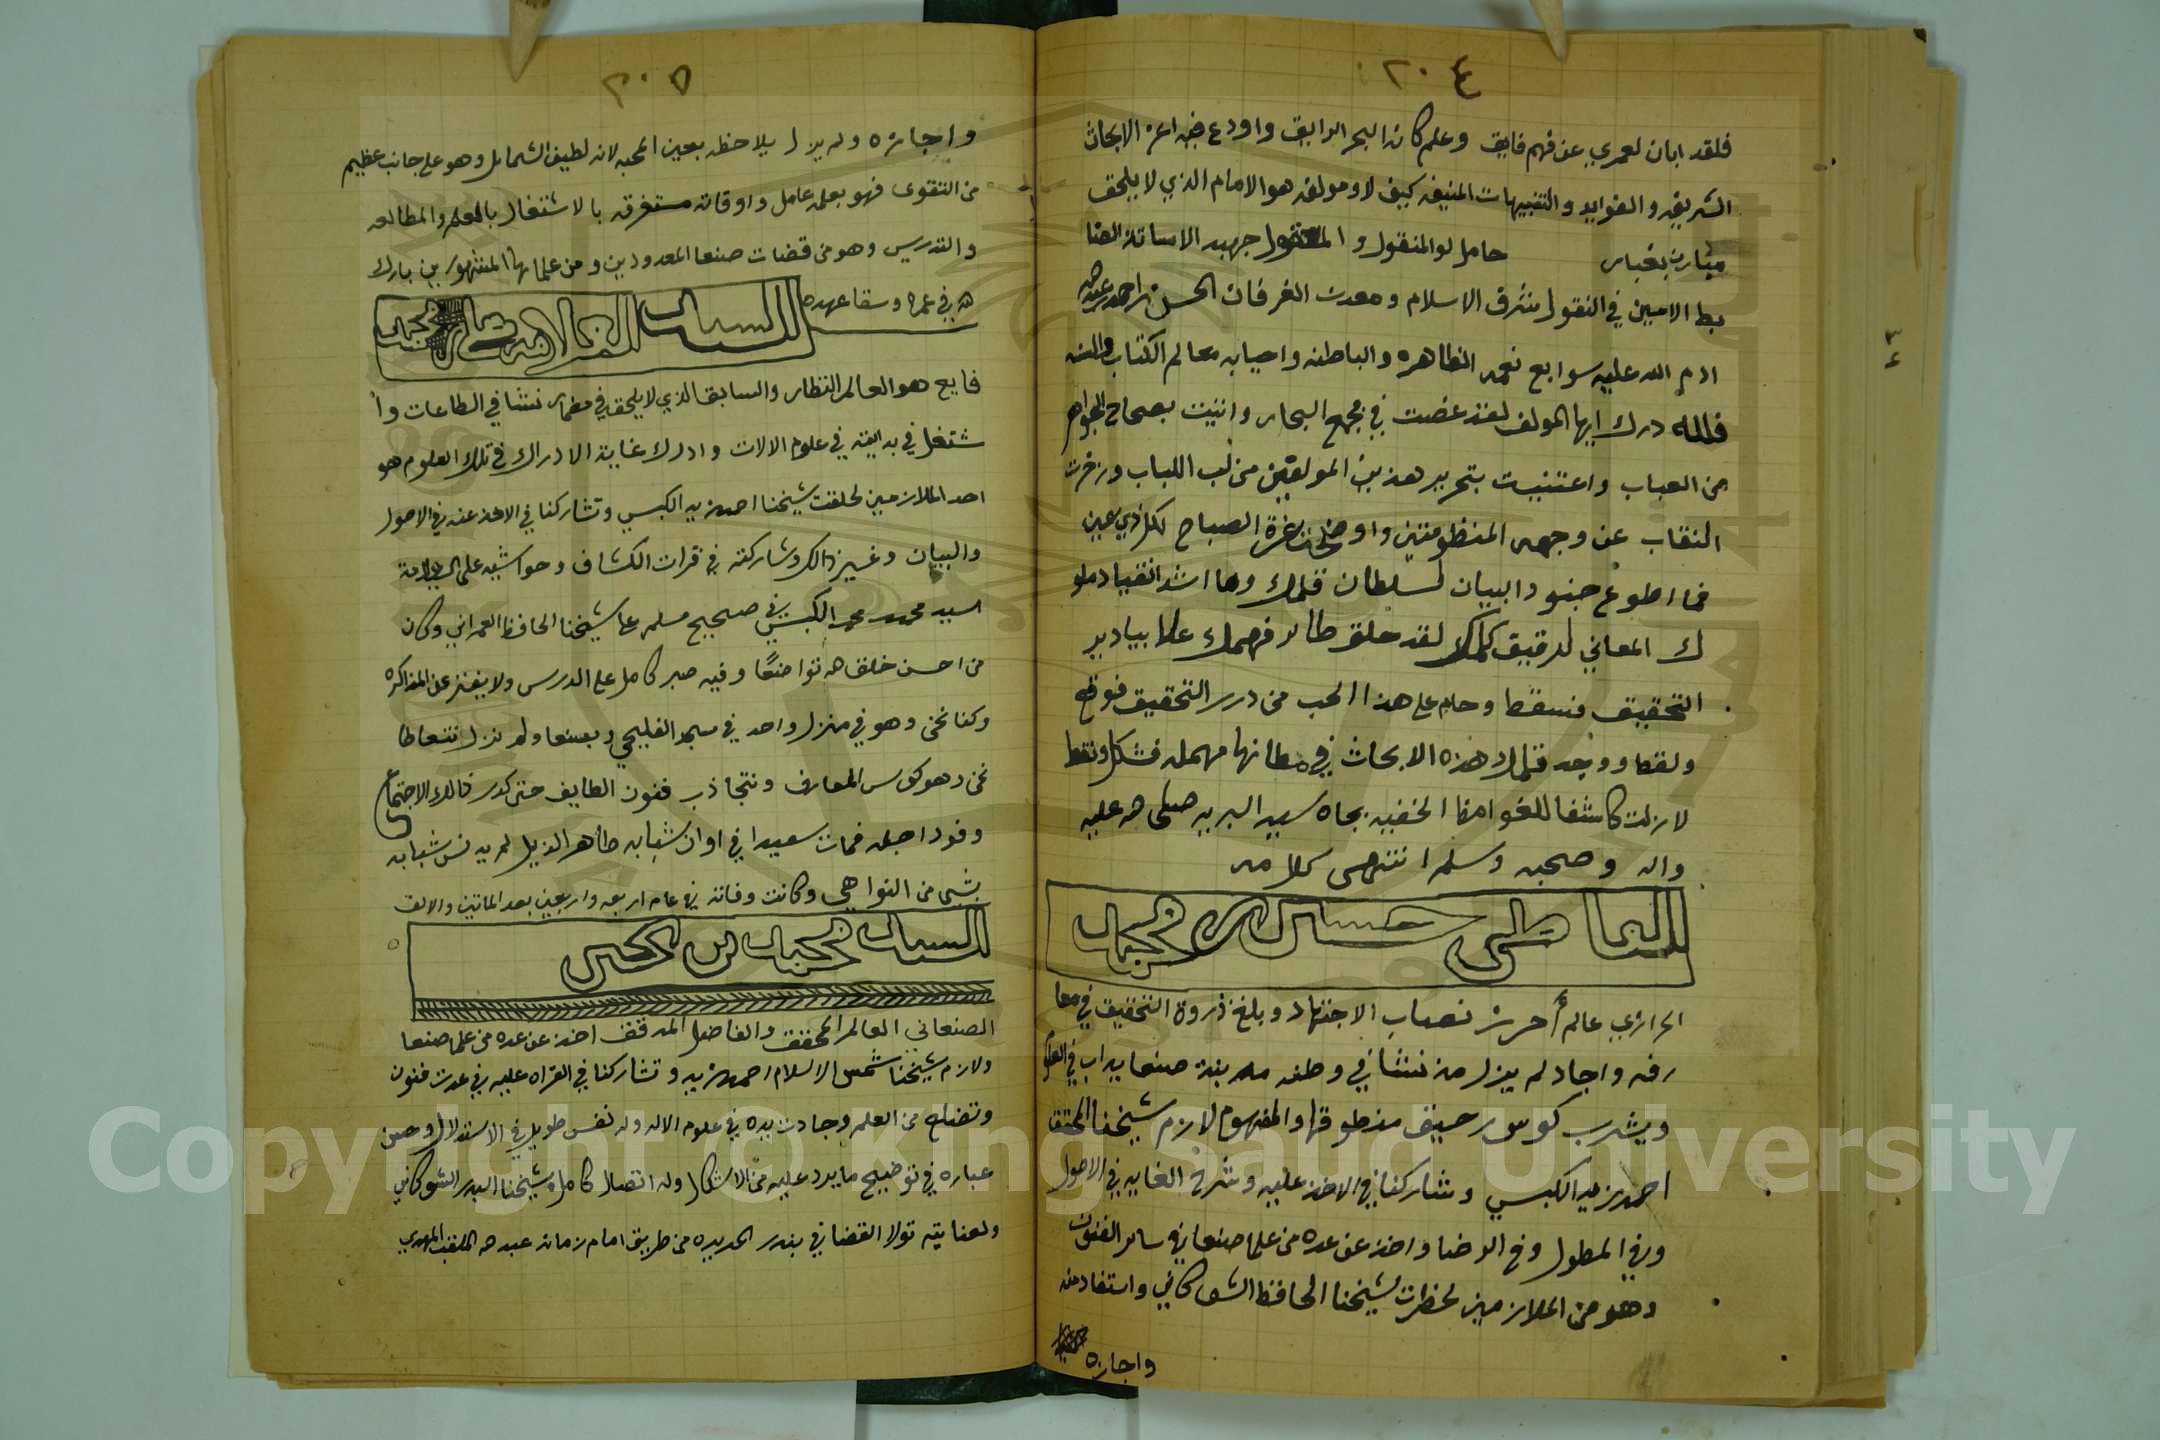 ٢٠٤
فلقد ابان لعمري عن فهم فايق وعلم كانه البحر الرايق واودع فيه اعز الابحاث
الشريفه والفوايد والتنبيهات المنيفه كيف لا ومولفه هو الامام الذي لا يلحق
بغبار حامل لوا المنقول و المعقول جهبد الاساتذة الضا
بط الامين في النقول شرف الاسلام و معدن العرفان الحسن احمد
ادم الله عليه سوابع نعمه الظاهره والباطنه واحيا به معالم الكتاب والسنه
فلله درك ايها المولف لقد غصت في مجمع البحار واتيت بصحاح الجواهر
من العباب واعتنيت بتحرير هذين المولفين من لب اللباب وزخرت
النقاب عن وجهه المنظومتين واوضحت غرة الصباح لكل ذي عين
فما اطوع جنود البيان لسلطان قلمك وما اشد انقياد ملو
ك المعاني لدقيق كمالك لقد حلق طاير فهمك علا بيادير
التحقيق فسقط وحام على هذا الحب من درر التحقيق فوقع
ولقط ووجد قلمك هذه الابحاث في مظانها مهمله فشكل ونقط
لا زلت كاشفا للغوامض الخفيه بجاه سيد البريه صلى الله عليه
واله وصحبه وسلم انتهى كلامه
القاضي حسين بن محمد
الحرازي عالم أحرز نصاب الاجتهاد وبلغ ذروة التحقيق في معا
رفه واجاد لم يزل منذ نشا في وطنه مدينة صنعا يداب في العلو
ويشرب كوس رحيق منطوقها والمفهوم لازم شيخنا المحقق
احمد زيد الكبسي وشاركنا في الاخذ عليه وشرح الغايه في الاصول
وفي المطول وفي الرضا واخذ عن عده من علما صنعا في ساير الفنون
وهو من الملازمين لحضرات شيخنا الحافظ الشوكاني واستفاد منه
واجازه
٢٠٥
واجازه ولم يزل يلاحظه بعين المحبه لانه لطيف الشمايل وهو على جانب عظيم
من التقوى فهو بعلمه عامل واوقاته مستغرقه بالاشتغال بالعلم والمطالعه
والتدريس وهو من قضات صنعا المعدودين ومن علمايها المشهورين بارك
الله في عمره وسقا عهده
السيد العلامه محمد
فايع هو العالم النظار والسابق الذي لا يلحق في مضمار نشا في الطاعات وا
شتغل في بدايته في علوم الالات وادرك غاية الادراك في تلك العلوم هو
احد الملازمين لحلقت شيخنا احمد زيد الكبسي وتشاركنا في الاخذ عنه في الاصول
والبيان وغير ذالك وشاركته في قرات الكشاف وحواشيه على العلامة
السيد محمد محمد الكبسي في صحيح مسلم على شيخنا الحافظ العمراني وكان
من احسن خلق الله تواضعًا وفيه صبر كامل على الدرس ولا يفتر عن المذاكره
وكنا نحن وهو في منزل واحد في مسجد الفليحي بصنعا ولم نزل نتعاطا
نحن وهو كوس المعارف ونتجاذب فنون الطايف حتى كدر ذالك الاجتماع
وفود اجله فمات سعيدا في اوان شبابه طاهر الذيل لم يدنس شبابه
بشي من النواهي وكانت وفاته في عام اربعه واربعين بعد الماتين والالف
السيد محمد بن الحسن
الصنعاني العالم المحقق والفاضل المدقق اخذ عن عده من علما صنعا
ولازم شيخنا شمس الاسلام احمد زيد وتشاركنا في القراه عليه في عدت فنون
وتضلع من العلم وجادت يده في علوم الاله وله نفس طويل في الاستدلال وحسن
عباره في توضيح ما يرد عليه من الاشكال وله اتصال كامل بشيخنا البدر الشوكاني
ولعنايته تولا القضا في بندر الحديده من طريق امام زمانه عبد الله الملقب المهدي
Copyright © King Saud University